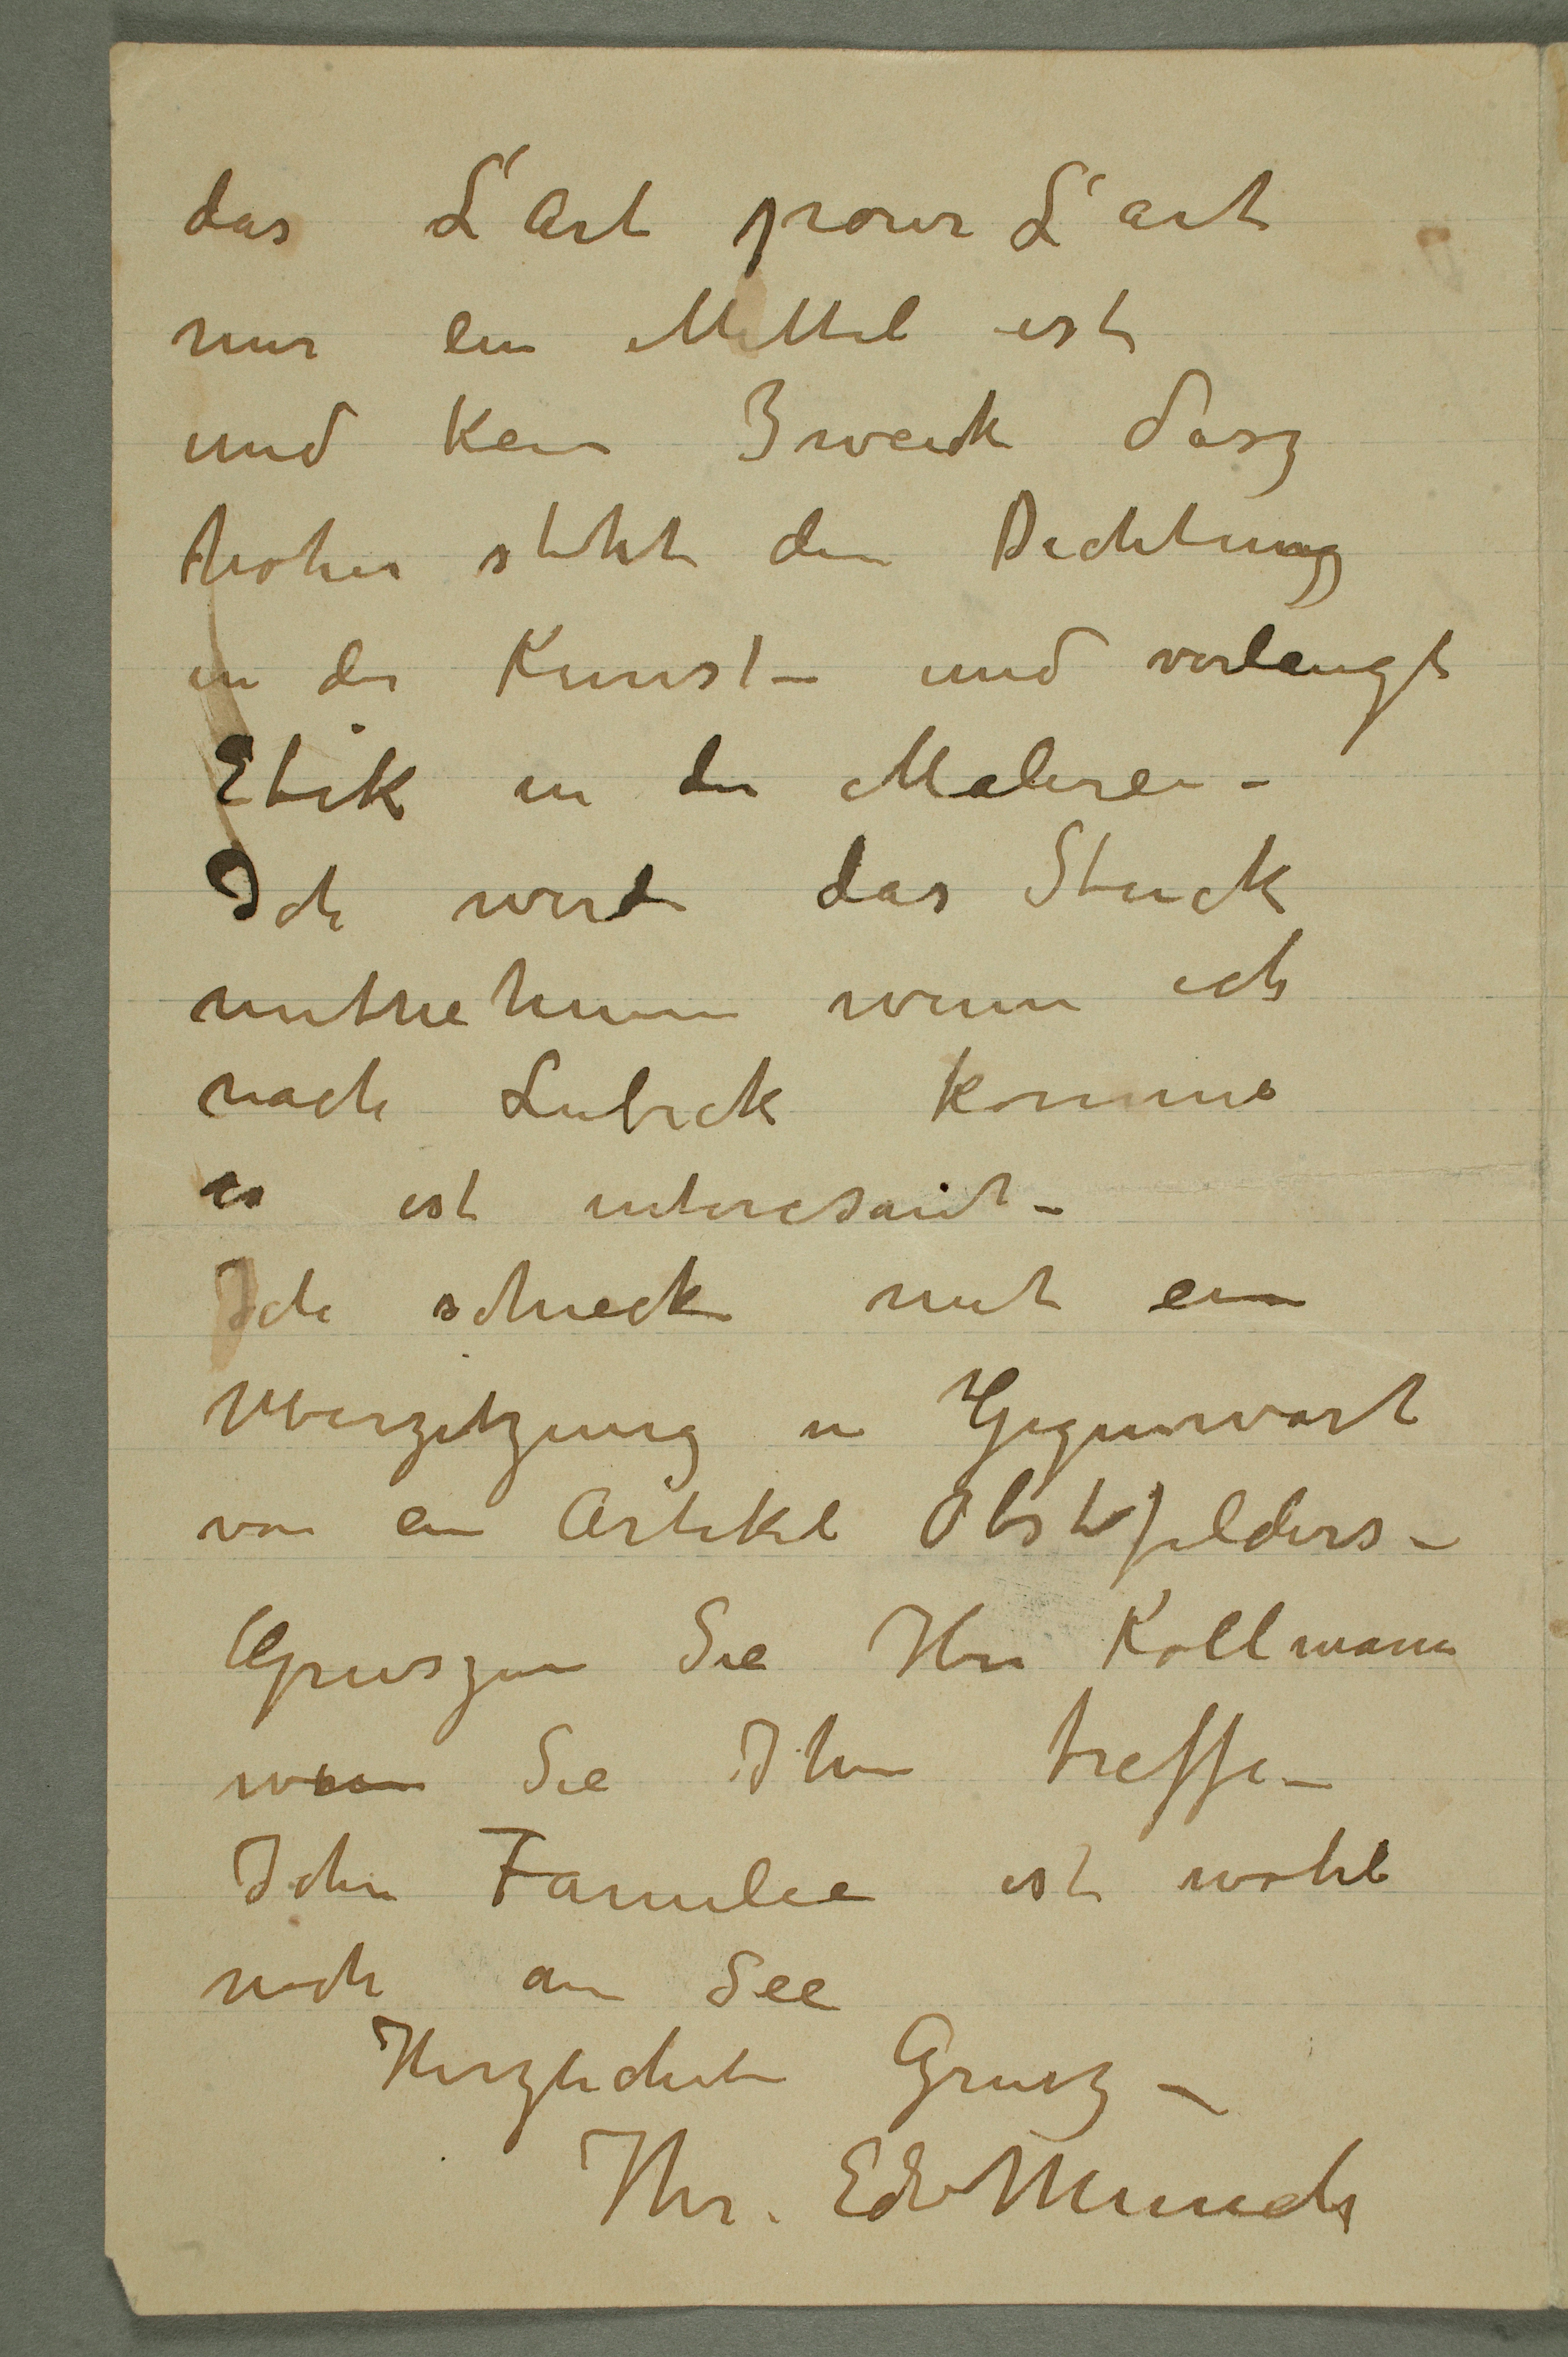 das L'Art pour L'art
nur ein Mittel ist
und kein Zweck dasz
hoher steht die Dichtung
in der Kunst – und verlangt
Etik in der Malerei –
Ich werde das Stuck
mitnehmen wenn ich
nach Lubeck komme
es ist interesant –
Ich schicke mit ein
Uberzitzung in Gegenwart
von ein Artikel Obstfelders –
Gruszen Sie Hrn Kollmann
wenn Sie Ihm treffe –
Ihre Familie ist wohl
noch am See
Herzlichste Grusz –
Ihr. Edv Munch